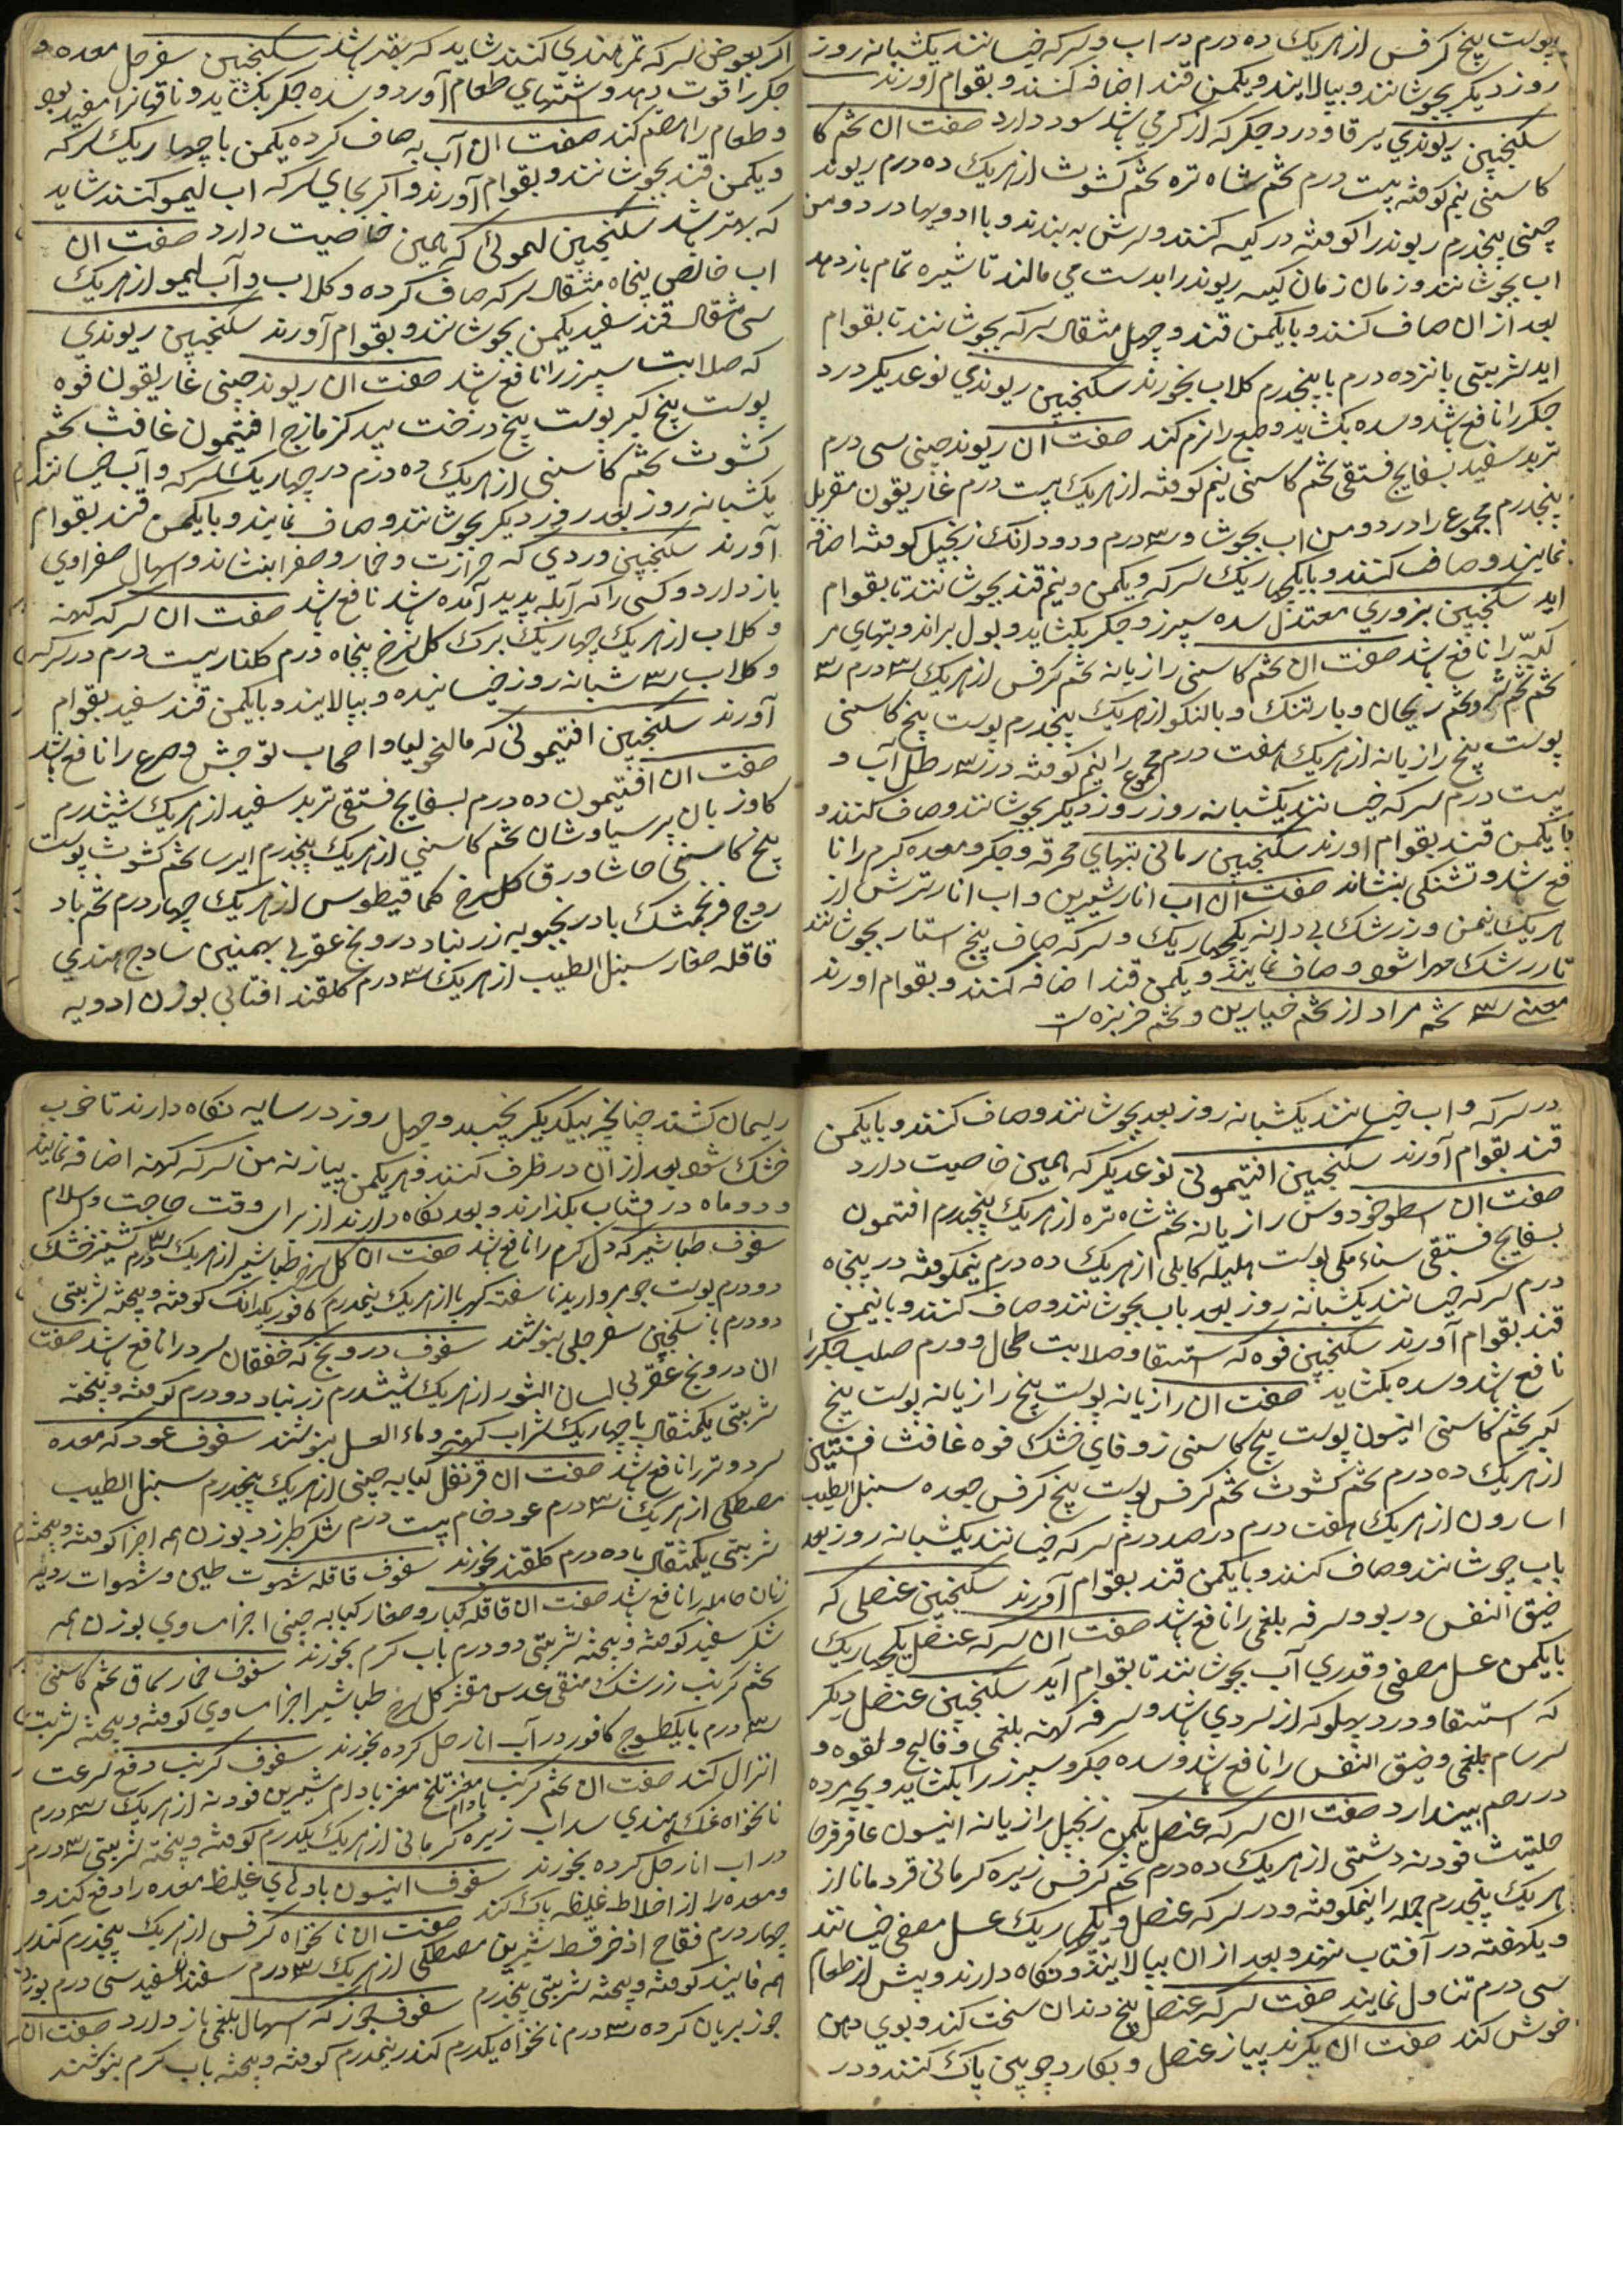 پوست بیخ کرفس از هریک ده درم در اب و سرکه خیسانند یکشبانه روز
روز دیکر بجوشانند و بپالایند و یکمن قند اضافه کنند و بقوام اورند
سکنجبین ریوندی یرقا و درد جکر که از کرمی باشد سود دارد صفت ان تخم کا
کاسنی نیم کوفته بیست درم تخم شاه تره تخم کشوث از هریک ده درم ریوند
چینی پنجدرم ریوند را کوفته در کیسه کنند و سرش به بندند و با ادویها در دو من
اب بجوشانند و زمان زمان کیسه ریوند را بدست می مالند تا شیره تمام باز دهد
بعد از ان صاف کنند و با یکمن قند و چهل مثقال سرکه بجوشانند تا بقوام
اید شربتی پانزده درم با پنجدرم کلاب بخورند سکنجبین ریوندی نوعدیکر درد
جکر را نافع باشد و سده بکشاید و طبع را نرم کند صفت ان ریوند چینی سی درم
تربد سفید بسفایج فستقی تخم کاسنی نیم کوفته از هریک بیست درم غاریقون مغربل
پنجدرم مجموع را در دو من اب بجوشا و ۳ درم و دو دانک زنجبیل کوفته اضافه
نمایند و صاف کنند و با یکچهاریک سرکه و یکمن و نیم قند بجوشانند تا بقوام
اید سکنجبین بزوری معتدل سده سپرز و جکر بکشاید و بول براند و تبهای مر
کبه را نافع باشد صفت ان تخم کاسنی رازیانه تخم کرفس از هریک ۳ درم ۳
تخم تخم وتخم ریحان و بارتنک و بالنکو از هریک پنجدرم پوست بیخ کاسنی
پوست بیخ رازیانه از هریک هفت درم مجموع را نیم کوفته در ۳ رطل آب و
بیست درم سرکه خیسانند یکشبانه روز روز دیکر بجوشانند و صاف کنند و
با یکمن قند بقوام اورند سکنجبین رمانی تبهای محرقه و جکر و معده کرم را نا
فع باشد و تشنکی بنشاند صفت ان اب انار شیرین و اب انار ترش از
هریک نیمن و زرشک بی دانه یکچهاریک و سرکه صاف پنج استار بجوشانند
تا زرشک مهرا شود و صاف نمایند و یکمن قند اضافه کنند و بقوام اورند
معنی ۳ تخم مراد از تخم خیارین و تخم خربزه است
اکر بعوض سرکه تمر هندی کنند شاید که بهتر باشد سکنجبین سفرجل معده و
جکر را قوت دهد و اشتهای طعام آورد و سده جکر بکشاید و ناقهانرا مفید بود
و طعام را هضم کند صفت ان آب به صاف کرده یکمن با چهاریک سرکه
و یکمن قند بجوشانند و بقوام آورند و اکر بجای سرکه اب لیمو کنند شاید
که بهتر باشد سکنجبین لیموئی که همین خاصیت دارد صفت ان
اب خالص پنجاه مثقال سرکه صاف کرده و کلاب و آب لیمو از هریک
سی مثقال قند سفید یکمن بجوشانند و بقوام آورند سکنجبین ریوندی
که صلابت سپرز را نافع باشد صفت ان ریوند چینی غاریقون فوه
پوست بیخ کبر پوست بیخ درخت بید کزمازج افتیمون غافث تخم
کشوث تخم کاسنی از هریک ده درم در چهاریک سرکه و آب خیسانند
یکشبانه روز بعد روز دیکر بجوشانند و صاف نمایند و با یکمن قند بقوام
آورند سکنجبین وردی که حرارت و خمار و صفرا بنشاند و اسهال صفراوی
باز دارد و کسی را که آبله پدید آمده باشد نافع باشد صفت ان سرکه کهنه
و کلاب از هریک چهاریک برک کل سرخ پنجاه درم کلنار بیست درم در سرکه
و کلاب ۳ شبانه روز خیسانیده و بپالایند و با یکمن قند سفید بقوام
آورند سکنجبین افتیمونی که مالنخولیا و اصحاب توحش و صرع را نافع باشد
صفت ان افتیمون ده درم بسفایج فستقی تربد سفید از هریک ششدرم
کاوزبان پرسیاوشان تخم کاسنی از هریک پنجدرم ایرسا تخم کشوث پوست
بیخ کاسنی حاشا ورق کل سرخ کمافیطوس از هریک چهار درم تخم باد
روج فرنجمشک بادرنجبویه زرنباد درونج عقربی بهمنین ساذج هندی
قاقله صغار سنبل الطیب از هریک ۳ درم کلقند افتابی بوزن ادویه
در سرکه و اب خیسانند یکشبانه روز بعد بجوشانند و صاف کنند و با یکمن
قند بقوام آورند سکنجبین افتیمونی نوعدیکر که همین خاصیت دارد
صفت ان اسطوخودوس رازیانه تخم شاه تره از هریک پنجدرم افتیمون
بسفایج فستقی سناء مکی پوست هلیله کابلی از هریک ده درم نیمکوفته در پنجاه
درم سرکه خیسانند یکشبانه روز بعد باب بجوشانند و صاف کنند و با نیمن
قند بقوام آورند سکنجبین فوه که استسقا و صلابت طحال و ورم صلب جکر را
نافع باشد و سده بکشاید صفت ان رازیانه پوست بیخ رازیانه پوست بیخ
کبر تخم کاسنی انیسون پوست بیخ کاسنی زوفای خشک فوه غافث افسنتین
از هریک ده درم تخم کشوث تخم کرفس پوست بیخ کرفس جعده سنبل الطیب
اسارون از هریک هفت درم در صد درم سرکه خیسانند یکشبانه روز بعد
باب جوشانند و صاف کنند و با یکمن قند بقوام آورند سکنجبین عنصلی که
ضیق النفس و ربو و سرفه بلغمی را نافع باشد صفت ان سرکه عنصل یکچهاریک
با یکمن عسل مصفی و قدری آب بجوشانند تا بقوام آید سکنجبین عنصل دیکر
که استسقا و درد پهلو که از سردی باشد و سرفه کهنه بلغمی و فالج و لقوه و
سرسام بلغمی و ضیق النفس را نافع باشد و سده جکر و سپرز را بکشاید و بچه مرده
در رحم بیندازد صفت ان سرکه عنصل یکمن زنجبیل رازیانه انیسون عاقرقرحا
حلتیت فودنه دشتی از هریک ده درم تخم کرفس زیره کرمانی قردمانا از
هریک پنجدرم جمله را نیمکوفته و در سرکه عنصل و یکچهاریک عسل مصفی خیسانند
و یکهفته در آفتاب نهند و بعد از ان بپالایند و نکاه دارند و پیش از طعام
سی درم تناول نمایند صفت سرکه عنصل بیخ دندان سخت کند و بوی دهن
خوش کند صفت ان بکیرند پیاز عنصل و بکارد چوبین پاک کنند و در
ریسمان کشند چنانچه بیکدیکر نچسبد و چهل روز در سایه نکاه دارند تا خوب
خشک شود بعد از ان در ظرف کنند و هریکمن پیاز نه من سرکه کهنه اضافه نمایند
و دو ماه در افتاب بکذارند و بعد نکاه دارند از برای وقت حاجت والسلام
سفوف طباشیر که دل کرم را نافع باشد صفت ان کل سرخ طباشیر از هریک ۳ درم کشنیز خشک
دو درم پوست جو مروارید ناسفته کهربا از هریک نیمدرم کافور یکدانک کوفته و بیخته شربتی
دو درم با سکنجبین سفرجلی بنوشند سفوف درونج که خفقان سرد را نافع باشد صفت
ان درونج عقربی لسان الثور از هریک ششدرم زرنباد دو درم کوفته و بیخته
شربتی یکمثقال با چهاریک شراب کهنه و ماء العسل بنوشند سفوف عود که معده
سرد و تر را نافع باشد صفت ان قرنفل کبابه چینی از هریک پنجدرم سنبل الطیب
مصطکی از هریک ۳ درم عود خام بیست درم شکر طبرزد بوزن همه اجزا کوفته و بیخته
شربتی یکمثقال با ده درم کلقند بخورند سفوف قاقله شهوت طین و شهوات ردیه
زنان حامله را نافع باشد صفت ان قاقله کبار و صغار کبابه چینی اجزا مساوی بوزن همه
شکر سفید کوفته و بیخته شربتی دو درم باب کرم بخورند سفوف خمار سماق تخم کاسنی
تخم کرنب زرشک منقی عدس مقشر کل سرخ طباشیر اجزا مساوی کوفته و بیخته شربت
۳ درم با یکطسوج کافور در آب انار حل کرده بخورند سفوف کرنب دفع سرعت
انزال کند صفت ان تخم کرنب مغز بادام تلخ مغز بادام شیرین فودنه از هریک ۳ درم
نانخواه نمک هندی سداب زیره کرمانی از هریک یکدرم کوفته و بیخته شربتی ۳ درم
در اب انار حل کرده بخورند سفوف انیسون بادهای غلیظ معده را دفع کند و
و معده را از اخلاط غلیظه پاک کند صفت ان نانخواه کرفس از هریک پنجدرم کندر
چهار درم فقاح اذخر قسط شیرین مصطکی از هریک ۳ درم اسفند سفید سی درم بوزن
همه فانیذ کوفته و بیخته شربتی پنجدرم سفوف جوز که اسهال بلغمی باز دارد صفت ان
جوز بریان کرده ۳ درم نانخواه یکدرم کندر نیمدرم کوفته و بیخته باب کرم بنوشند